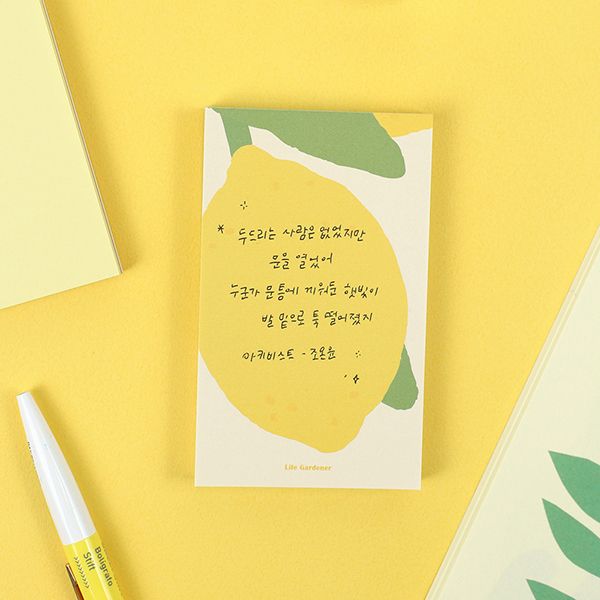 * 두드리는 사람은 없었지만
문을 열었어
누군가 문틈에 끼워둔 햇빛이
발 밑으로 툭 떨어졌지
아키비스트 - 조온윤
Life Gardener
Bolígrafo
Stift